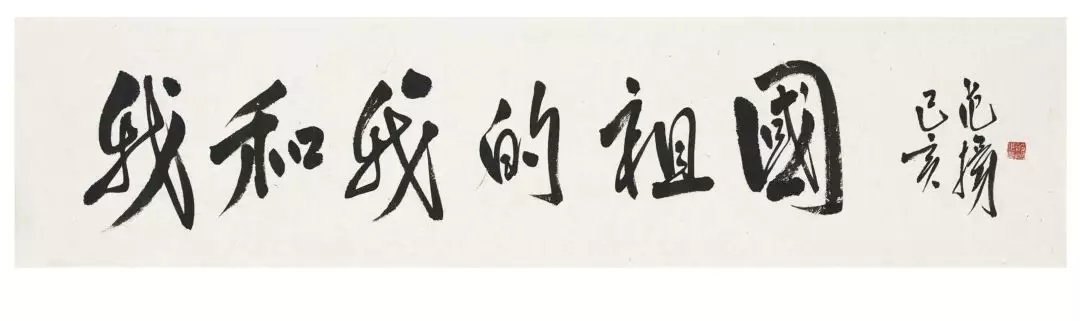 我和我的祖國
范揚
己亥